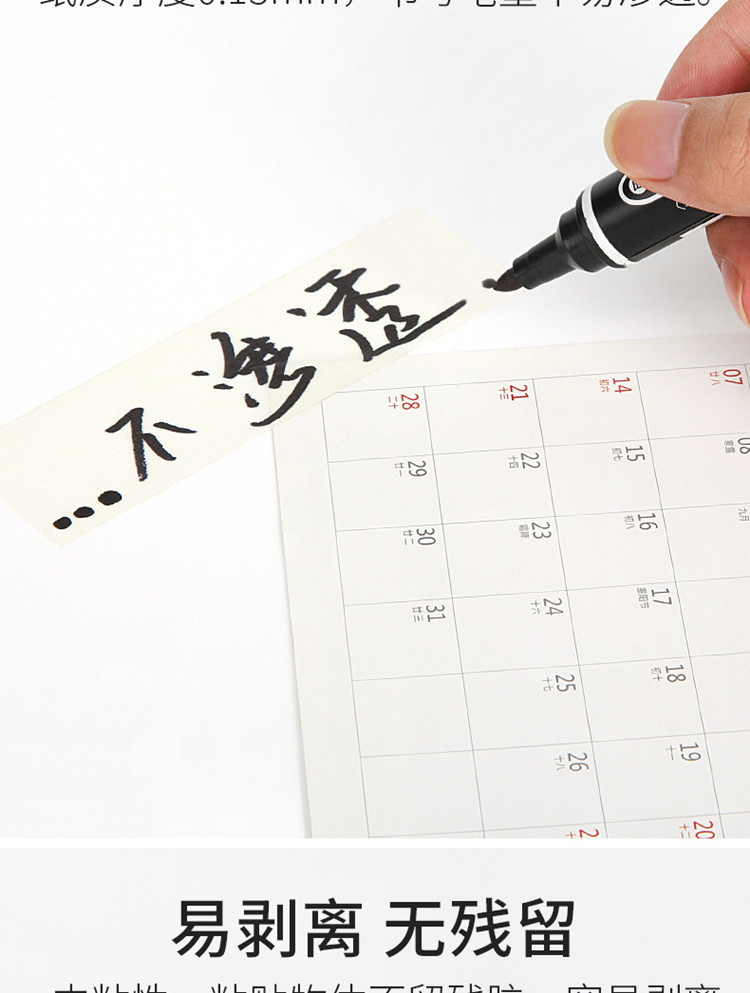 不渗透
...
28 二十
21 十三
14 初六
07 廿八
29 廿一
22 十四
15 初七
08 寒露
30 廿二
23 霜降
16 初八
九月
31 廿三
24 十六
17 重阳节
25 十七
18 初十
26 十八
19 十一
20 十二
易剥离 无残留